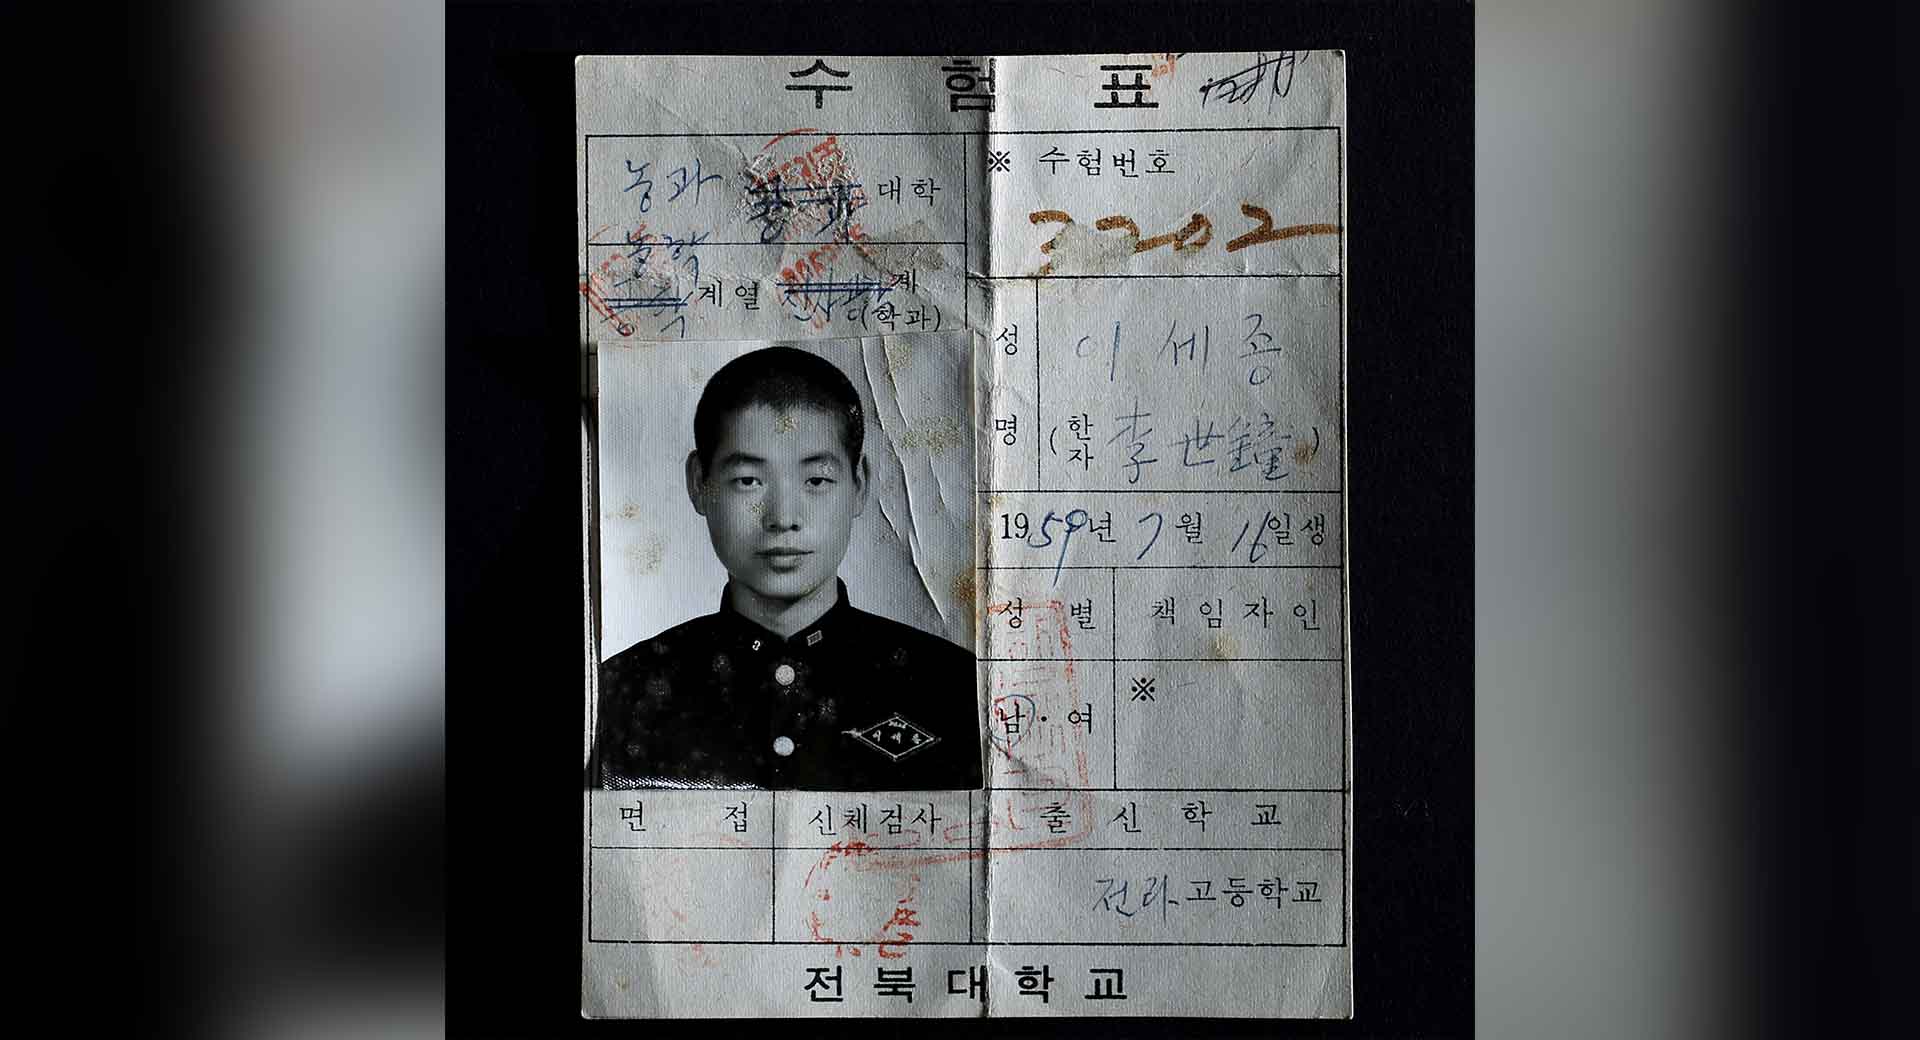 수 험 표
농과 대학
※ 수험번호
3202
농학
계열 계
(학과)
성 이 세 종
명 (한자 李世鐘)
1959년 7월 16일생
성 별 책 임 자 인
남 · 여 ※
이세종
면 접 신체검사 출 신 학 교
전라고등학교
전 북 대 학 교